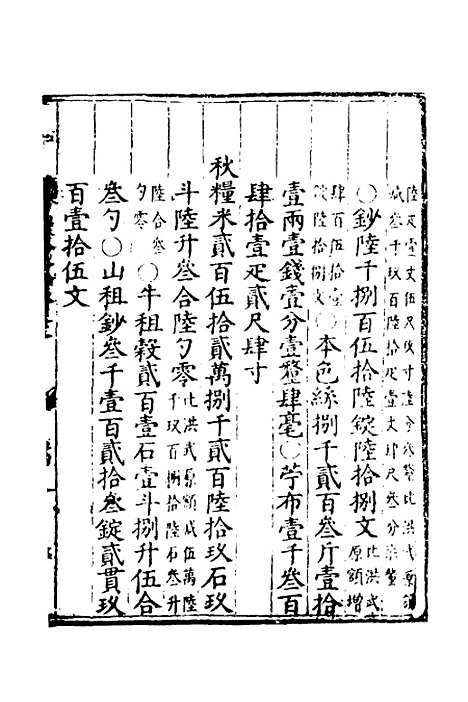 陸疋壹丈伍尺伍寸陸分叁釐比洪武原額
減叁千玖百陸拾疋壹丈肆尺叁分柒釐
○鈔陸千捌百伍拾陸錠陸拾捌文比洪武原額增
肆百伍拾壹錠陸拾捌文○本色絲捌千貳百叁斤壹拾
壹兩壹錢壹分壹釐肆毫○苧布壹千叁百
肆拾壹疋貳尺肆寸
秋糧米貳百伍拾貳萬捌千貳百陸拾玖石玖
斗陸升叁合陸勺零比洪武原額減伍萬陸千玖百捌拾陸石叁升
陸合叁勺零○牛租穀貳百壹石壹斗捌升伍合
叁勺○山租鈔叁千壹百貳拾叁錠貳貫玖
百壹拾伍文